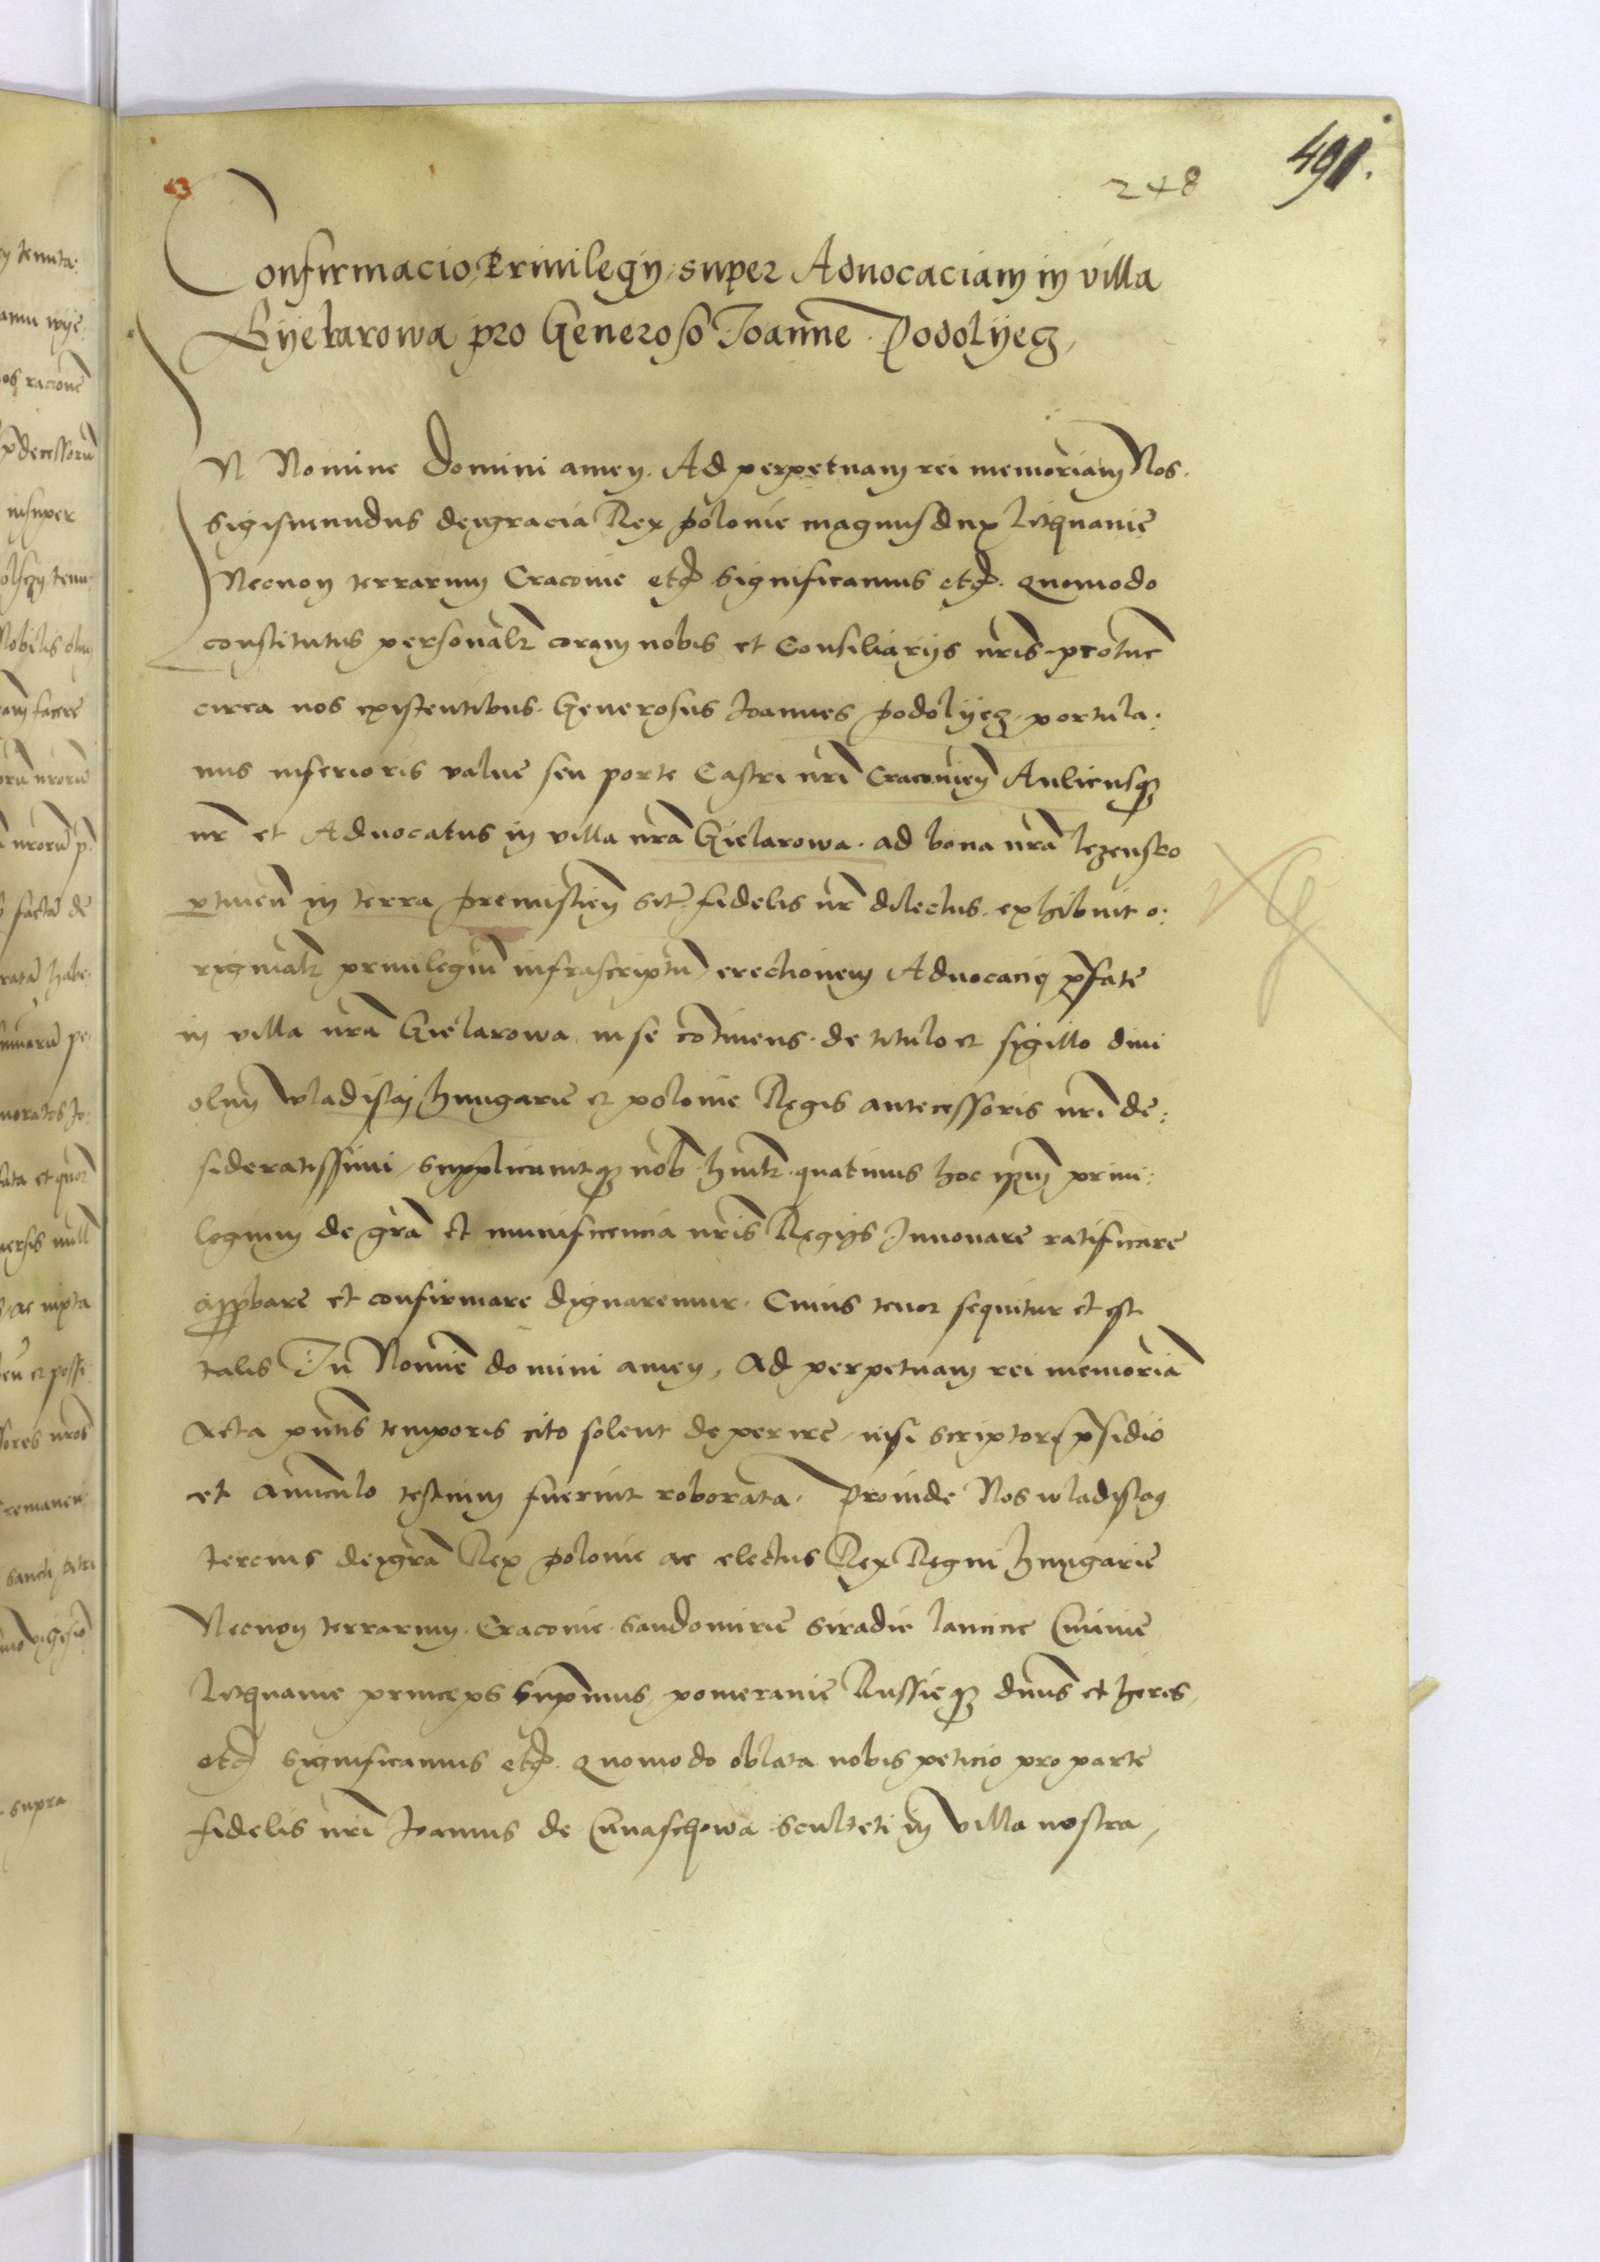 491.
248
Confirmacio Privilegy super Advocaciam in villa
Gyelarowa pro Generoso Joanne Podolyecz
In Nomine Domini amen. Ad perpetuam rei memoriam Nos.
Sigismundus dei gracia Rex polonie magnus dux litquanie
Necnon terrarum Cracovie etc significamus etc. Quomodo
constitutus personalr coram nobis et Consiliarijs nris protunc
circa nos existentibus. Generosus Joannes podolyecz portula:
nus inferioris valve seu porte Castri nri Cracovien Aulicusq
nr et Advocatus in villa nra Gielarowa. ad bona nra lezensco
ptinen in terra premislien sit. fidelis nr dilectus. exhibuit o:
riginalr privilegiu infrascriptu erectionem Advocacie pfate
in villa nra Gielarowa in se cotinens. de titulo et sigillo divi
olim wladislai hungarie et polonie Regis antecessoris nri de:
sideratissimi supplicavitq nob hmlr. quatinus hoc ipsum privi:
legium de gra et munificencia nris Regijs Innovare ratificare
appbare et confirmare dignaremur. Cuius tenor sequitur et est
talis In Nomie domini amen, Ad perpetuam rei memoria
Acta pntis temporis cito solent deperire nisi scriptori psidio
et amiculo testium fuerint roborata. Proinde Nos wladislaus
tercius dei gra Rex polonie ac electus Rex Regni hungarie
Necnon terrarum Cracovie Sandomirie Siradie lancicie Cuiavie
litquanie princeps supmus pomeranie Russieq dnus et heres,
etc significamus etc. Quomodo oblata nobis peticio pro parte
fidelis nri Joannis de Cunaschowa sculteti in villa nostra,